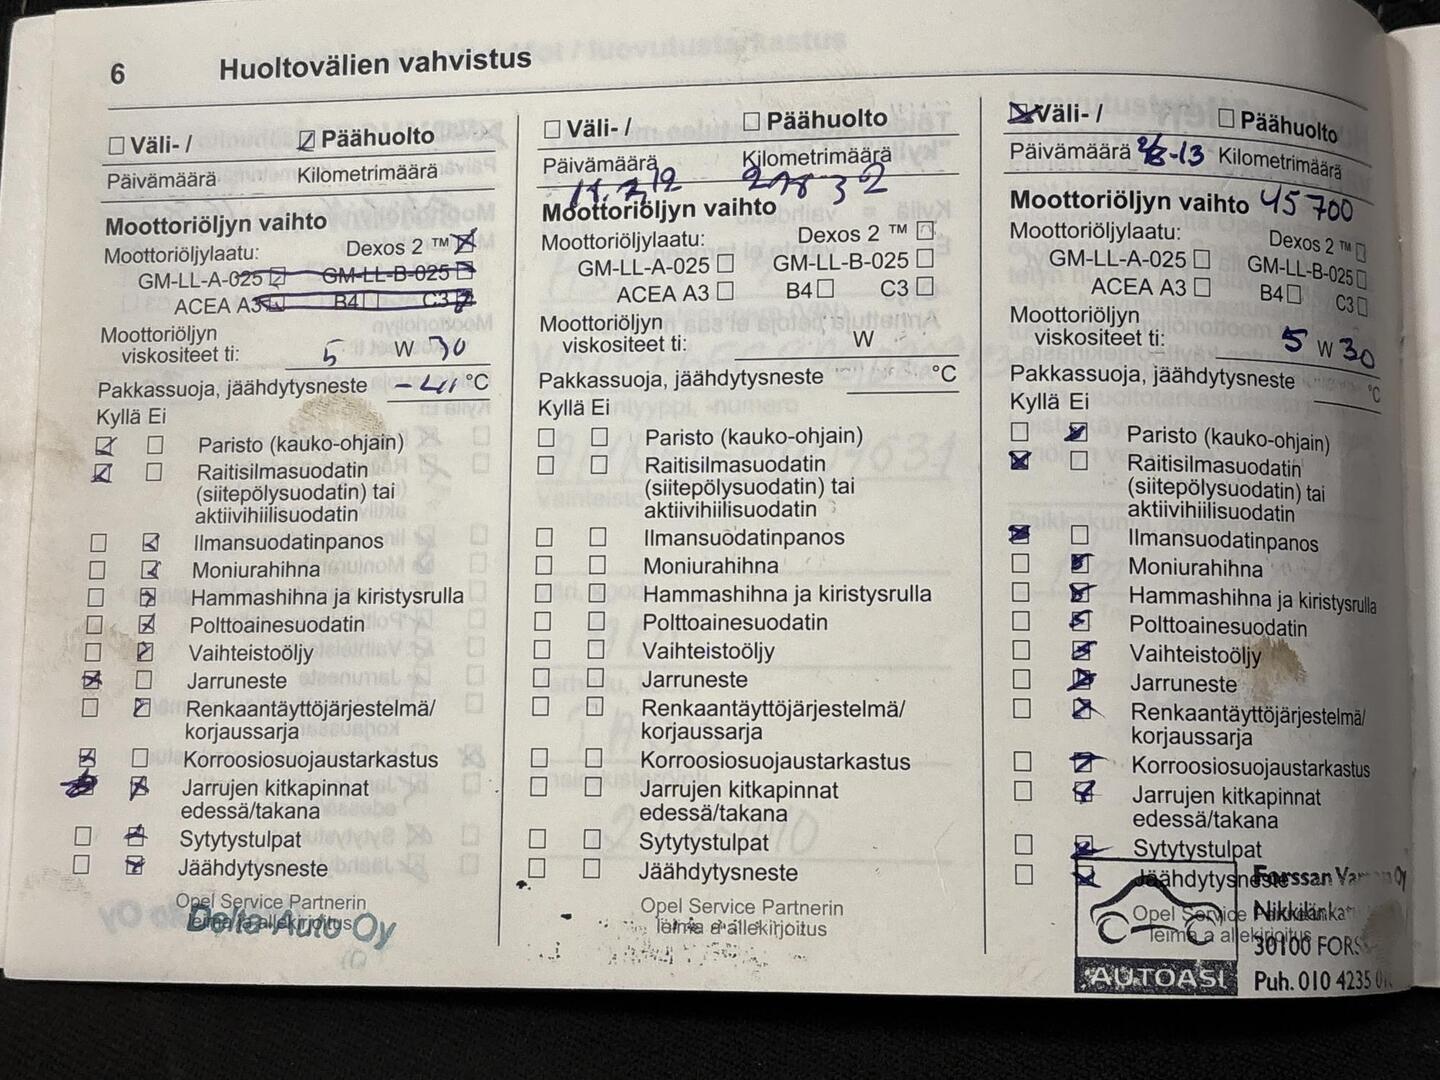 6 Huoltovälien vahvistus
Väli- / Päähuolto
Päivämäärä Kilometrimäärä
Moottoriöljyn vaihto
Moottoriöljylaatu: Dexos 2 ™
GM-LL-A-025 GM-LL-B-025
ACEA A3 B4 C3
Moottoriöljyn
viskositeet ti: 5 W 30
Pakkassuoja, jäähdytysneste °C
Kyllä Ei
Paristo (kauko-ohjain)
Raitisilmasuodatin
(siitepölysuodatin) tai
aktiivihiilisuodatin
Ilmansuodatinpanos
Moniurahihna
Hammashihna ja kiristysrulla
Polttoainesuodatin
Vaihteistoöljy
Jarruneste
Renkaantäyttöjärjestelmä/
korjaussarja
Korroosiosuojaustarkastus
Jarrujen kitkapinnat
edessä/takana
Sytytystulpat
Jäähdytysneste
Opel Service Partnerin
leima ja allekirjoitus
Delta-Auto Oy
Väli- / Päähuolto
Päivämäärä Kilometrimäärä
Moottoriöljyn vaihto
Moottoriöljylaatu: Dexos 2 ™
GM-LL-A-025 GM-LL-B-025
ACEA A3 B4 C3
Moottoriöljyn
viskositeet ti: W
Pakkassuoja, jäähdytysneste °C
Kyllä Ei
Paristo (kauko-ohjain)
Raitisilmasuodatin
(siitepölysuodatin) tai
aktiivihiilisuodatin
Ilmansuodatinpanos
Moniurahihna
Hammashihna ja kiristysrulla
Polttoainesuodatin
Vaihteistoöljy
Jarruneste
Renkaantäyttöjärjestelmä/
korjaussarja
Korroosiosuojaustarkastus
Jarrujen kitkapinnat
edessä/takana
Sytytystulpat
Jäähdytysneste
Opel Service Partnerin
leima a allekirjoitus
Väli- / Päähuolto
Päivämäärä 2/8-13 Kilometrimäärä
Moottoriöljyn vaihto 45700
Moottoriöljylaatu: Dexos 2 ™
GM-LL-A-025 GM-LL-B-025
ACEA A3 B4 C3
Moottoriöljyn
viskositeet ti: 5 W 30
Pakkassuoja, jäähdytysneste °C
Kyllä Ei
Paristo (kauko-ohjain)
Raitisilmasuodatin
(siitepölysuodatin) tai
aktiivihiilisuodatin
Ilmansuodatinpanos
Moniurahihna
Hammashihna ja kiristysrulla
Polttoainesuodatin
Vaihteistoöljy
Jarruneste
Renkaantäyttöjärjestelmä/
korjaussarja
Korroosiosuojaustarkastus
Jarrujen kitkapinnat
edessä/takana
Sytytystulpat
Jäähdytysneste
Opel Service
leima a allekirjoitus
Forssan
30100
AUTOASI Puh. 010 4235